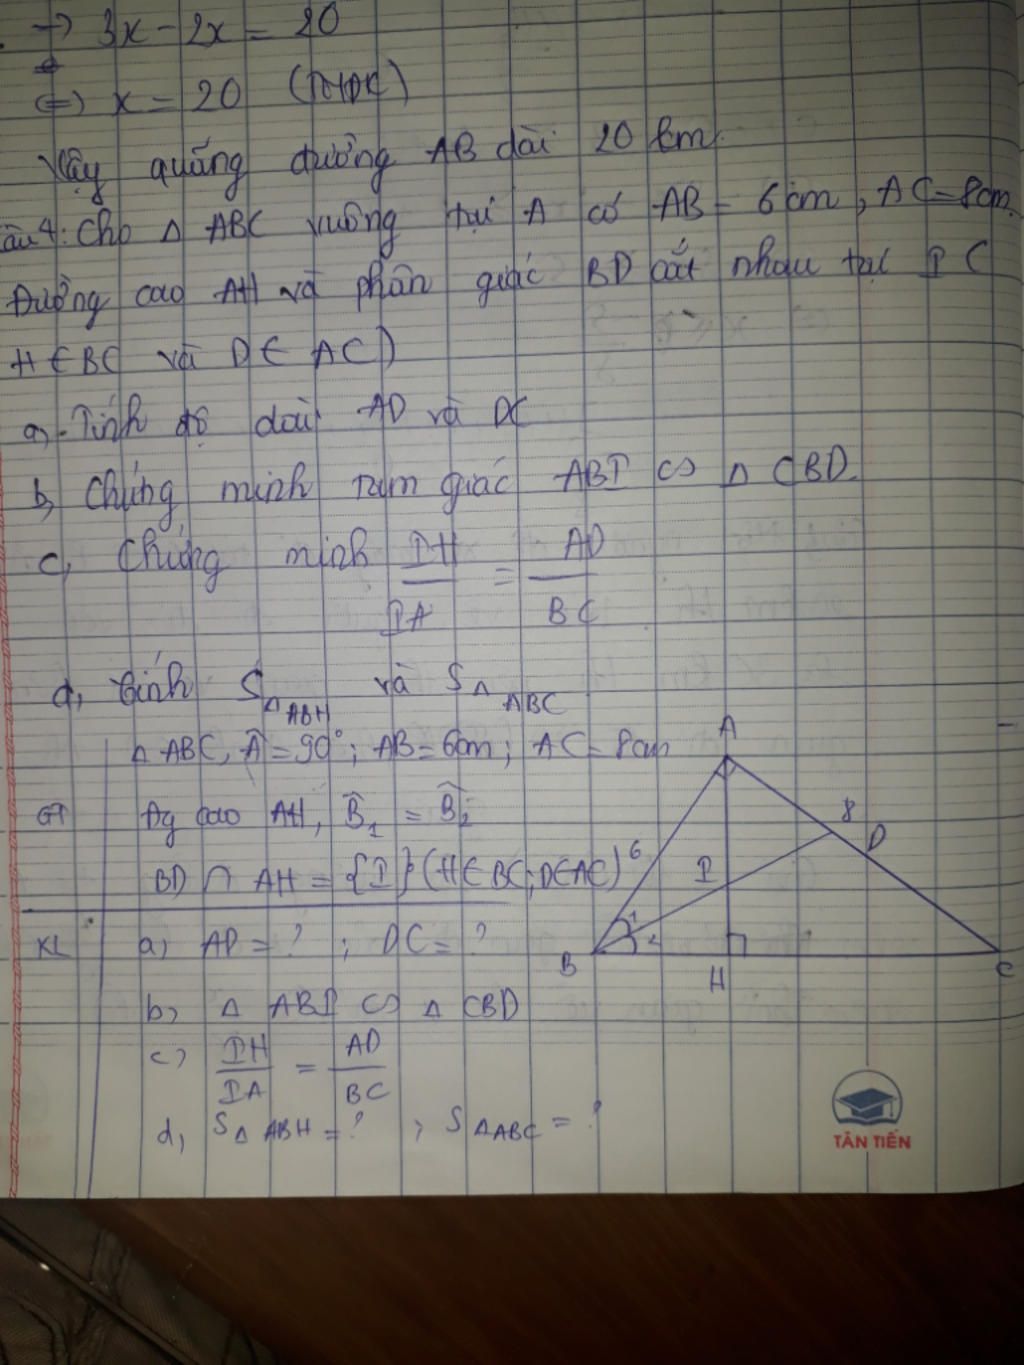 → 3x - 2x = 20
⇔ x = 20 (TMĐK)
Vậy quãng đường AB dài 20 km.
Câu 4: Cho Δ ABC vuông tại A có AB = 6cm, AC = 8cm.
Đường cao AH và phân giác BD cắt nhau tại I (
H ∈ BC và D ∈ AC)
a, Tính độ dài AD và DC
b, Chứng minh tam giác ABI ∽ Δ CBD.
c, Chứng minh IH/IA = AD/BC
d, tính SΔABH và SΔABC
Δ ABC, Â = 90°; AB = 6cm; AC = 8cm
GT Đg cao AH, B̂1 = B̂2
BD ∩ AH = {I} (H ∈ BC; D ∈ AC)
KL a) AD = ? ; DC = ?
b) Δ ABI ∽ Δ CBD
c) IH/IA = AD/BC
d, SΔABH = ? ; SΔABC = ?
A
8
D
6
I
1
2
B
H
C
TÂN TIẾN